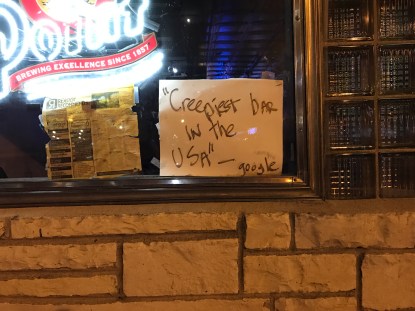 BREWING EXCELLENCE SINCE 1857
"Creepiest bar
in the
USA" –
google